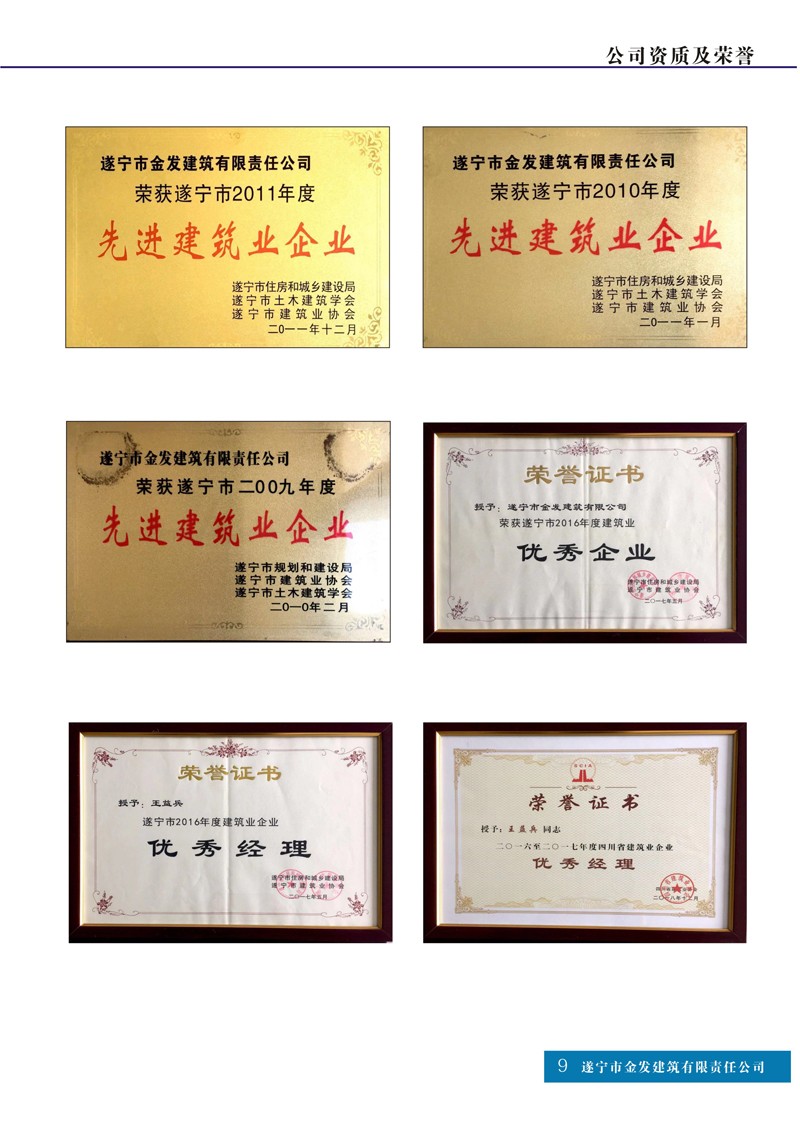 公司资质及荣誉
遂宁市金发建筑有限责任公司
荣获遂宁市2011年度
先进建筑业企业
遂宁市住房和城乡建设局
遂宁市土木建筑学会
遂宁市建筑业协会
二0一一年十二月
遂宁市金发建筑有限责任公司
荣获遂宁市2010年度
先进建筑业企业
遂宁市住房和城乡建设局
遂宁市土木建筑学会
遂宁市建筑业协会
二0一一年一月
遂宁市金发建筑有限责任公司
荣获遂宁市二00九年度
先进建筑业企业
遂宁市规划和建设局
遂宁市建筑业协会
遂宁市土木建筑学会
二0一0年二月
荣誉证书
授予：遂宁市金发建筑有限公司
荣获遂宁市2016年度建筑业
优秀企业
遂宁市住房和城乡建设局
遂宁市建筑业协会
二〇一七年五月
荣誉证书
授予：王益兵
遂宁市2016年度建筑业企业
优秀经理
遂宁市住房和城乡建设局
遂宁市建筑业协会
二〇一七年五月
荣誉证书
授予：王益兵 同志
二〇一六至二〇一七年度四川省建筑业企业
优秀经理
9 遂宁市金发建筑有限责任公司